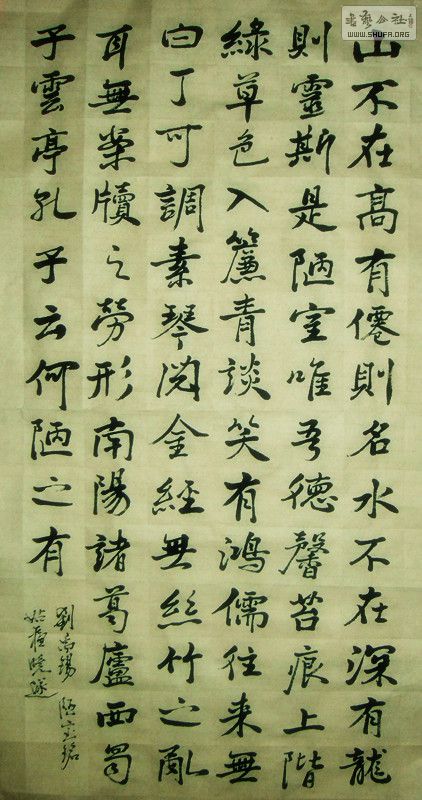 山不在高有僊則名水不在深有龍
則靈斯是陋室唯吾德馨苔痕上階
綠草色入簾青談笑有鴻儒往来無
白丁可調素琴閱金經無絲竹之亂
耳無案牘之勞形南陽諸葛廬西蜀
子雲亭孔子云何陋之有
劉禹錫 陋室銘
書藝公社
WWW.SHUFA.ORG